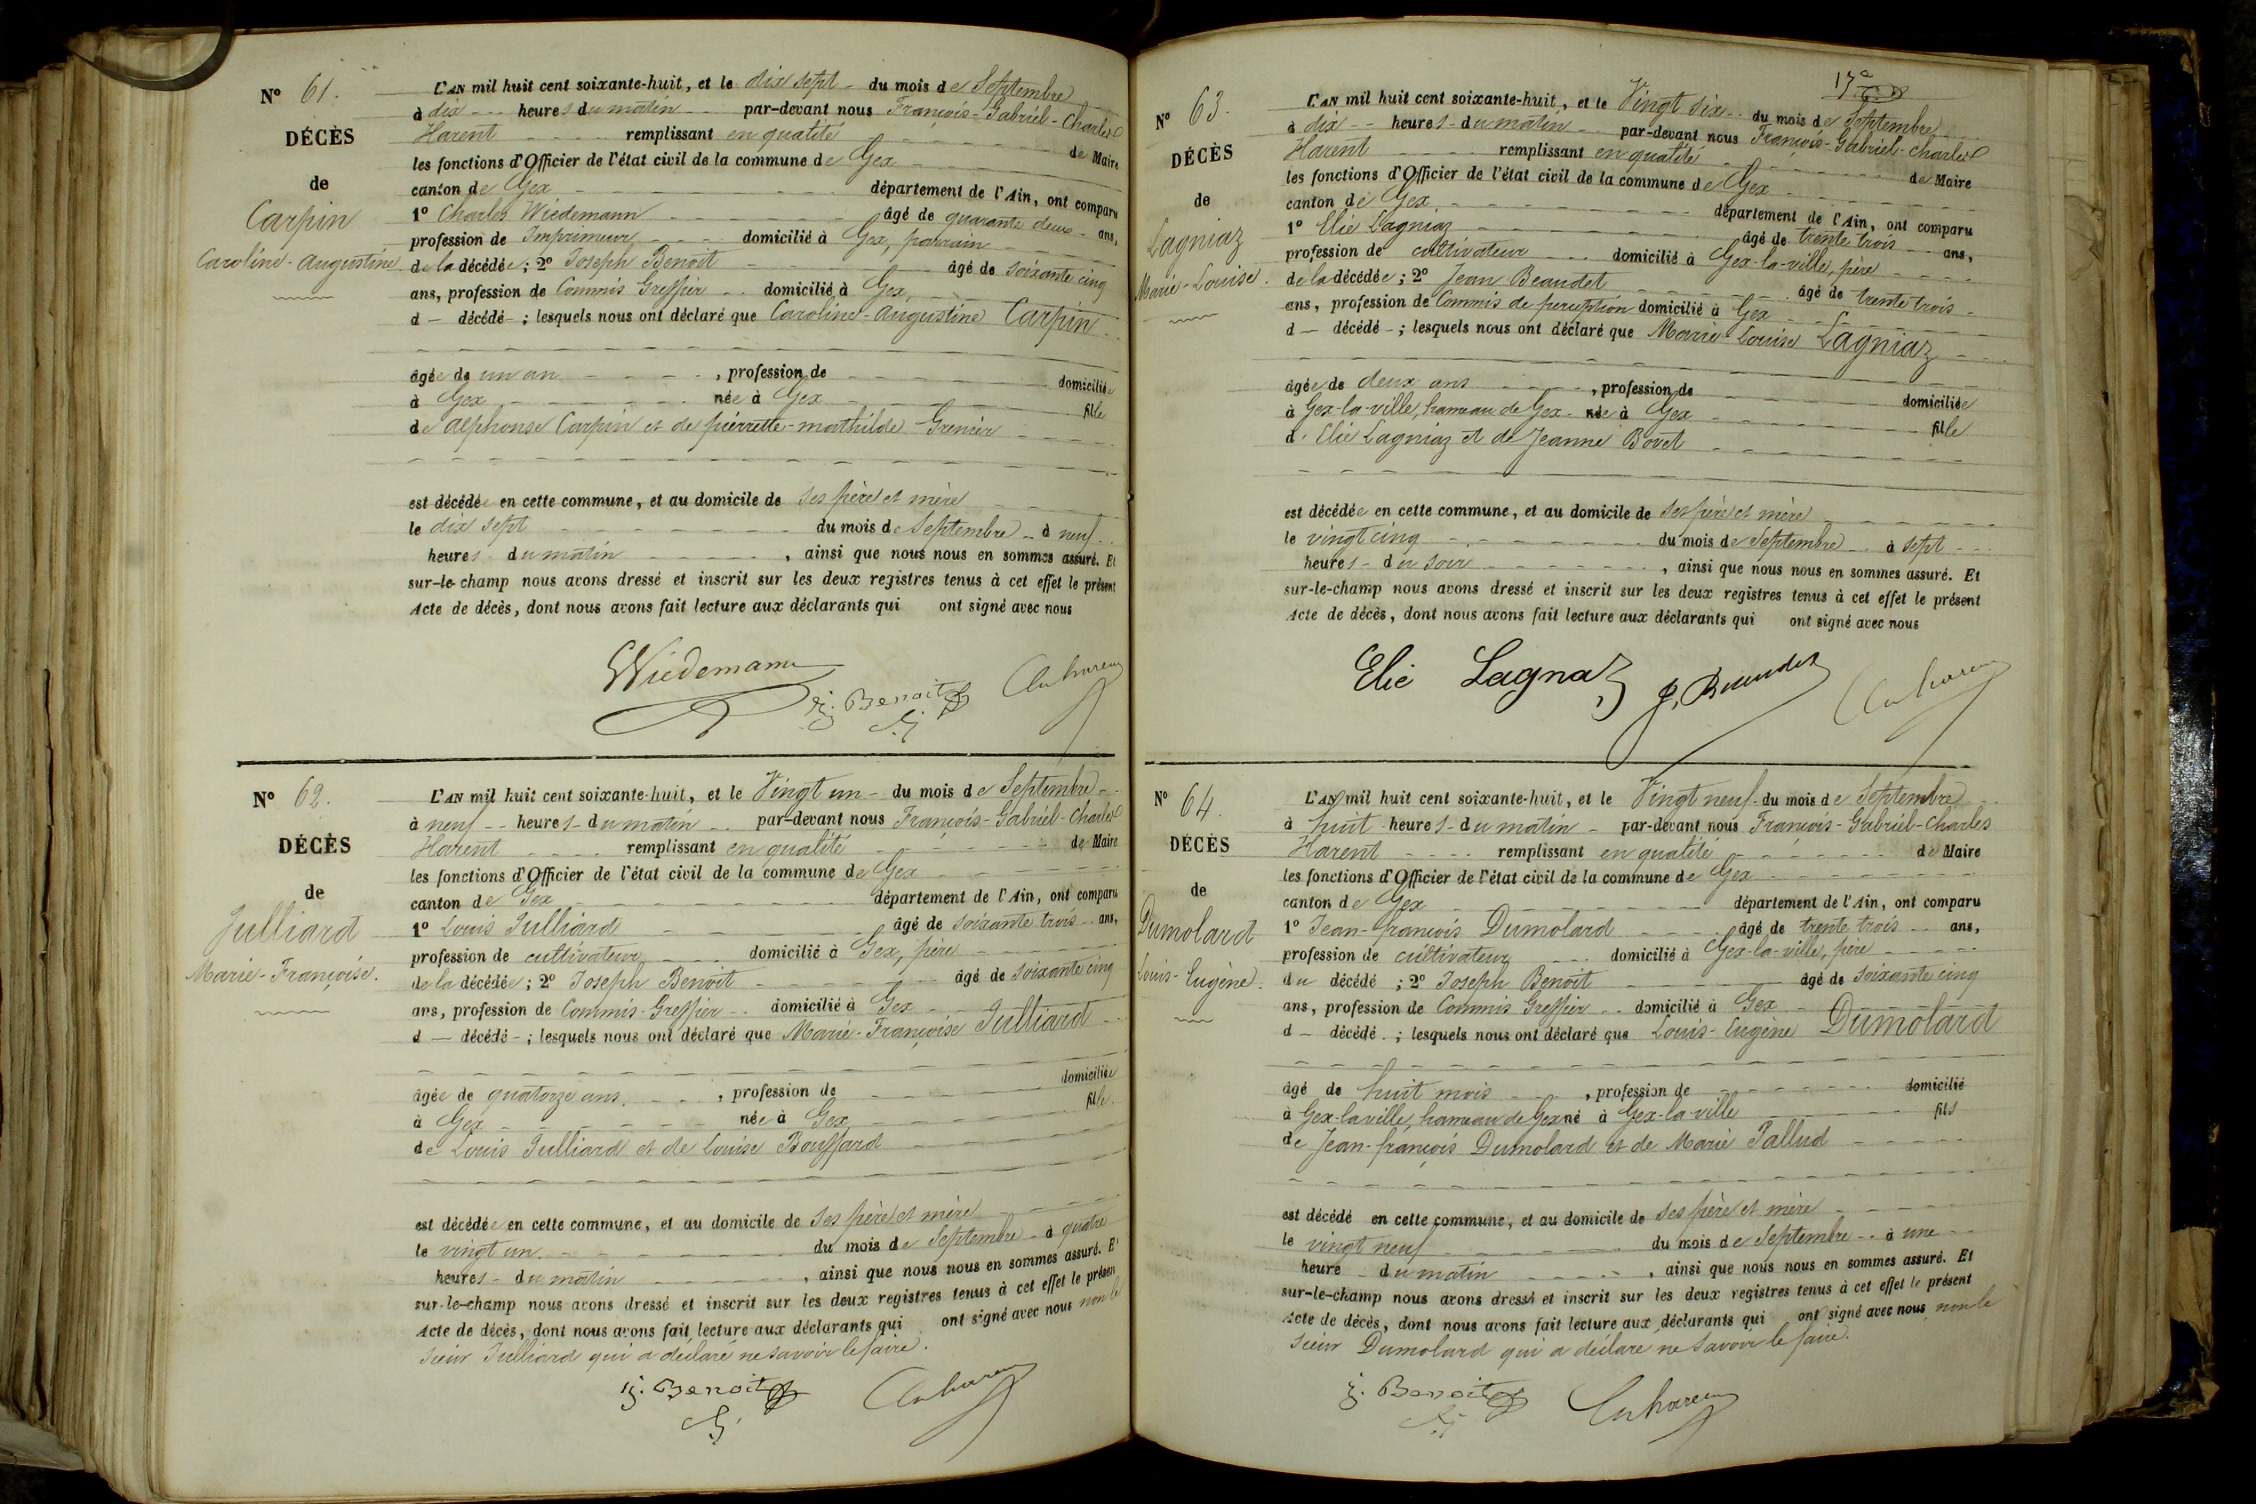 N° 61.
DÉCÈS
de
Carpin
Caroline-Augustine
L'AN mil huit cent soixante-huit, et le dix sept du mois de Septembre
à dix heures du matin par-devant nous François-Gabriel-Charles
Harent remplissant en qualité de Maire
les fonctions d'Officier de l'état civil de la commune de Gex
canton de Gex département de l'Ain, ont comparu
1° Charles Wiedemann âgé de quarante deux ans,
profession de Imprimeur domicilié à Gex, parrain
de la décédée; 2° Joseph Benoit âgé de soixante cinq
ans, profession de Commis Greffier domicilié à Gex,
d — décédé - ; lesquels nous ont déclaré que Caroline-Augustine Carpin
âgée de un an , profession de domiciliée
à Gex née à Gex fille
de Alphonse Carpin et de pierrette-mathilde Grenier
est décédée en cette commune, et au domicile de ses père et mère
le dix sept du mois de Septembre à neuf
heures du matin , ainsi que nous nous en sommes assuré. Et
sur-le-champ nous avons dressé et inscrit sur les deux registres tenus à cet effet le présent
Acte de décès, dont nous avons fait lecture aux déclarants qui ont signé avec nous
Wiedemann
j. Benoit
N° 62.
DÉCÈS
de
Julliard
Marie-Françoise.
L'AN mil huit cent soixante-huit, et le Vingt un du mois de Septembre
à neuf heures du matin par-devant nous François-Gabriel-Charles
Harent remplissant en qualité de Maire
les fonctions d'Officier de l'état civil de la commune de Gex
canton de Gex département de l'Ain, ont comparu
1° Louis Julliard âgé de soixante trois ans,
profession de cultivateur domicilié à Gex, père
de la décédée; 2° Joseph Benoit âgé de soixante cinq
ans, profession de Commis-Greffier domicilié à Gex
d — décédé - ; lesquels nous ont déclaré que Marie-Françoise Julliard
âgée de quatorze ans. , profession de domiciliée
à Gex née à Gex fille
de Louis Julliard et de Louise Bouffard
est décédée en cette commune, et au domicile de ses père et mère
le vingt un du mois de Septembre à quatre
heures du matin , ainsi que nous nous en sommes assuré. Et
sur-le-champ nous avons dressé et inscrit sur les deux registres tenus à cet effet le présen
Acte de décès, dont nous avons fait lecture aux déclarants qui ont signé avec nous non le
sieur Julliard qui a déclaré ne savoir le faire.
j. Benoit
17e
N° 63.
DÉCÈS
de
Lagniaz
Marie-Louise.
L'AN mil huit cent soixante-huit, et le Vingt six du mois de Septembre
à dix heures du matin par-devant nous François-Gabriel-Charles
Harent remplissant en qualité de Maire
les fonctions d'Officier de l'état civil de la commune de Gex
canton de Gex département de l'Ain, ont comparu
1° Elie Lagniaz âgé de trente trois ans,
profession de cultivateur domicilié à Gex-la-ville, père
de la décédée; 2° Jean Beaudet âgé de trente trois
ans, profession de Commis de perception domicilié à Gex
d — décédé - ; lesquels nous ont déclaré que Marie-Louise Lagniaz
âgée de deux ans , profession de domiciliée
à Gex-la-ville, hameau de Gex née à Gex fille
d'Elie Lagniaz et de Jeanne Bovet
est décédée en cette commune, et au domicile de ses père et mère
le vingt cinq du mois de Septembre à sept
heures du soir , ainsi que nous nous en sommes assuré. Et
sur-le-champ nous avons dressé et inscrit sur les deux registres tenus à cet effet le présent
Acte de décès, dont nous avons fait lecture aux déclarants qui ont signé avec nous
Elie Lagnaz J. Beaudet
N° 64.
DÉCÈS
de
Dumolard
Louis-Eugène.
L'AN mil huit cent soixante-huit, et le Vingt neuf du mois de Septembre
à huit heures du matin par-devant nous François-Gabriel-Charles
Harent remplissant en qualité de Maire
les fonctions d'Officier de l'état civil de la commune de Gex
canton de Gex département de l'Ain, ont comparu
1° Jean-françois Dumolard âgé de trente trois ans,
profession de cultivateur domicilié à Gex-la-ville, père
du décédé ; 2° Joseph Benoit âgé de soixante cinq
ans, profession de Commis Greffier domicilié à Gex
d — décédé - ; lesquels nous ont déclaré que Louis-Eugène Dumolard
âgé de huit mois , profession de domicilié
à Gex-la ville, hameau de Gex né à Gex-la-ville fils
de Jean-françois Dumolard et de Marie Pallud
est décédé en cette commune, et au domicile de ses père et mère
le vingt neuf du mois de Septembre à une
heure du matin , ainsi que nous nous en sommes assuré. Et
sur-le-champ nous avons dressé et inscrit sur les deux registres tenus à cet effet le présent
Acte de décès, dont nous avons fait lecture aux déclarants qui ont signé avec nous non le
sieur Dumolard qui a déclaré ne savoir le faire.
j. Benoit